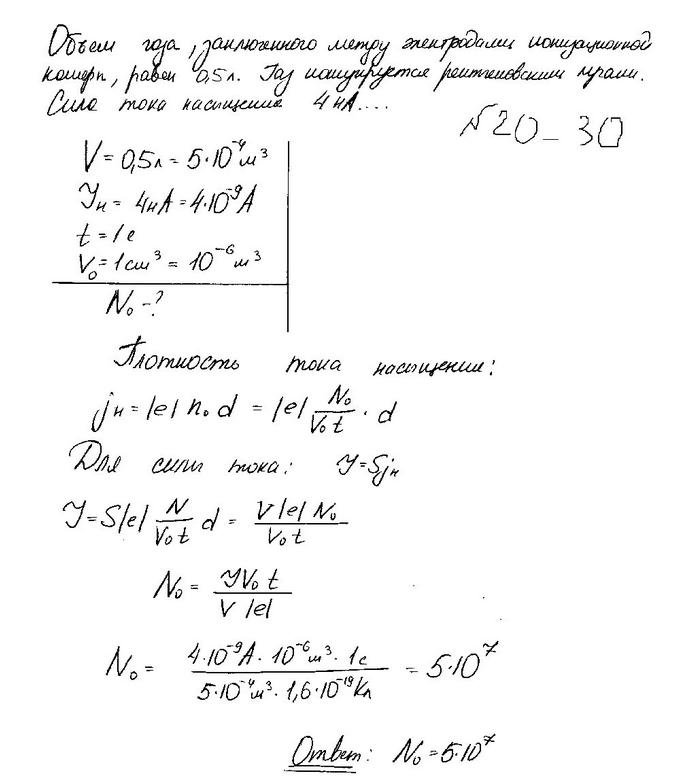 Объем газа, заключенного между электродами ионизационной
камеры, равен 0,5л. Газ ионизируется рентгеновскими лучами.
Сила тока насыщения 4нА....
№20-30
V = 0,5л = 5·10⁻⁴м³
Iн = 4нА = 4·10⁻⁹А
t = 1с
V₀ = 1см³ = 10⁻⁶м³
N₀ - ?
Плотность тока насыщения:
jн = |e| n₀ d = |e| N₀/V₀t · d
Для силы тока: I = Sjн
I = S|e| N/V₀t d = V|e|N₀/V₀t
N₀ = IV₀t/V|e|
N₀ = 4·10⁻⁹А·10⁻⁶м³·1с/5·10⁻⁴м³·1,6·10⁻¹⁹Кл = 5·10⁷
Ответ: N₀ = 5·10⁷